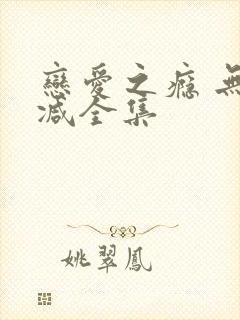 戀愛之瘾 無
减全集
姚翠鳳